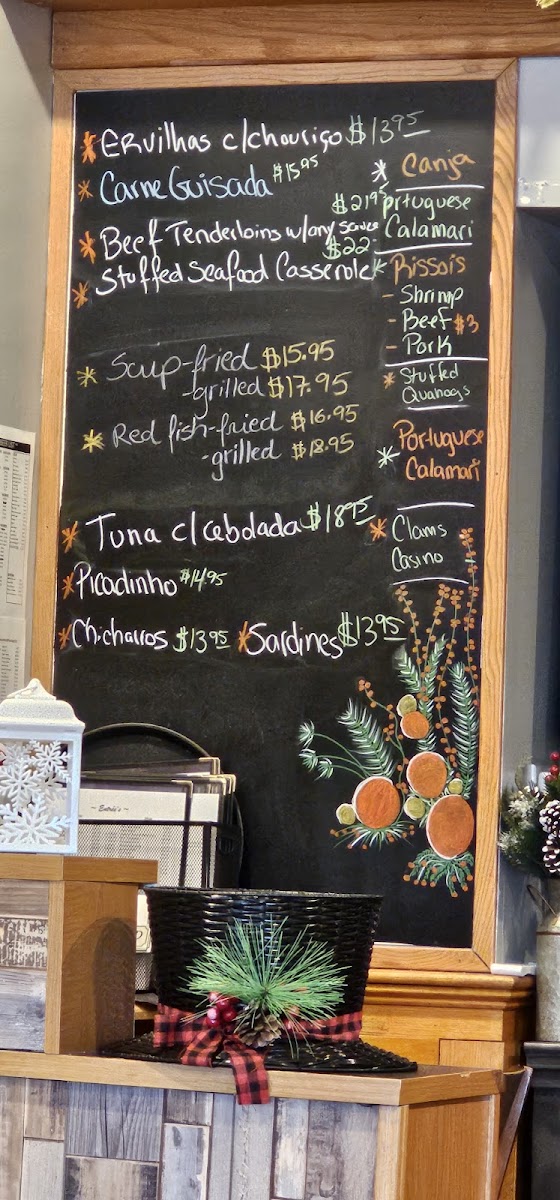 * Ervilhas c/chouriço $13.95
* Carne Guisada $15.95
* Beef Tenderloins w/any sauce $21.95
* Stuffed Seafood Casserole $22.
* Scup-fried $15.95
-grilled $17.95
* Red fish-fried $16.95
-grilled $18.95
* Tuna c/cebolada $18.95
* Picadinho $14.95
* Chicharros $13.95 * Sardines $13.95
* Canja
Portuguese
Calamari
* Rissois
- Shrimp
- Beef $3
- Pork
* Stuffed
Quahogs
Portuguese
* Calamari
* Clams
Casino
~ Entrée's ~